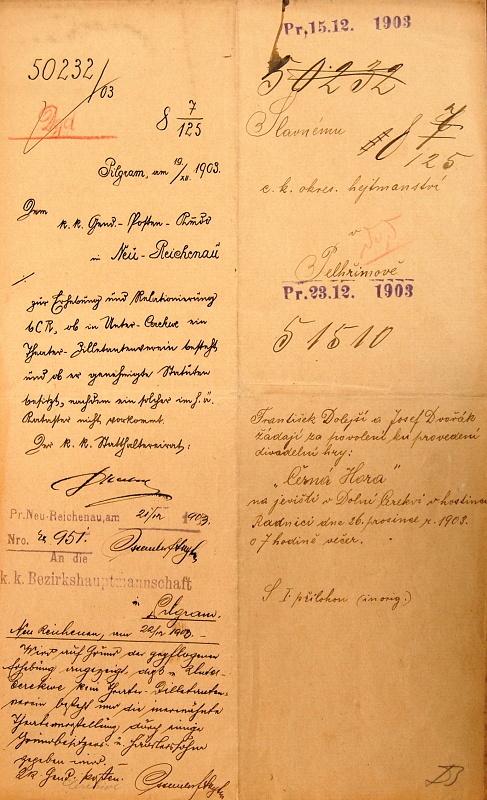 50232/03
8 7/125
Pilgram, am 19/XII. 1903.
Dem
k. k. Gend.-Posten-Kmdo
in Neu-Reichenau
zur Erhebung und Relationierung
bCR, ob in Unter-Cerekwe ein
Theater-Dilletantenverein besteht
und ob er genehmigte Statuten
besitzt, nachdem ein solcher im h. ä.
Kataster nicht vorkommt.
Der k. k. Statthaltereirat:
Pr. Neu-Reichenau, am 21/XII 1903.
Nro. 951.
An die
k. k. Bezirkshauptmannschaft
in
Pilgram.
Neu Reichenau, am 22/12 1903.
Wird auf Grund der gepflogenen
Erhebung angezeigt, daß in Unter-
Cerekwe kein Theater-Dilletanten-
verein besteht und die
Theatervorstellung durch einige
Grundbesitzers- u. Häuslerssöhne
gegeben wird.
K. k. Gend. Posten.
Pr. 15.12. 1903
50232
Slavnému
8 7/125
c. k. okres. hejtmanství
v
Pelhřimově
Pr. 23.12. 1903
51510
František Dolejší a Josef Dvořák
žádají za povolení ku provedení
divadelní hry:
„Černá Hora"
na jevišti v Dolní Cerekvi v hostinci
Radnici dne 26. prosince r. 1903.
o 7 hodině večer.
S 1. přílohou (in orig.)